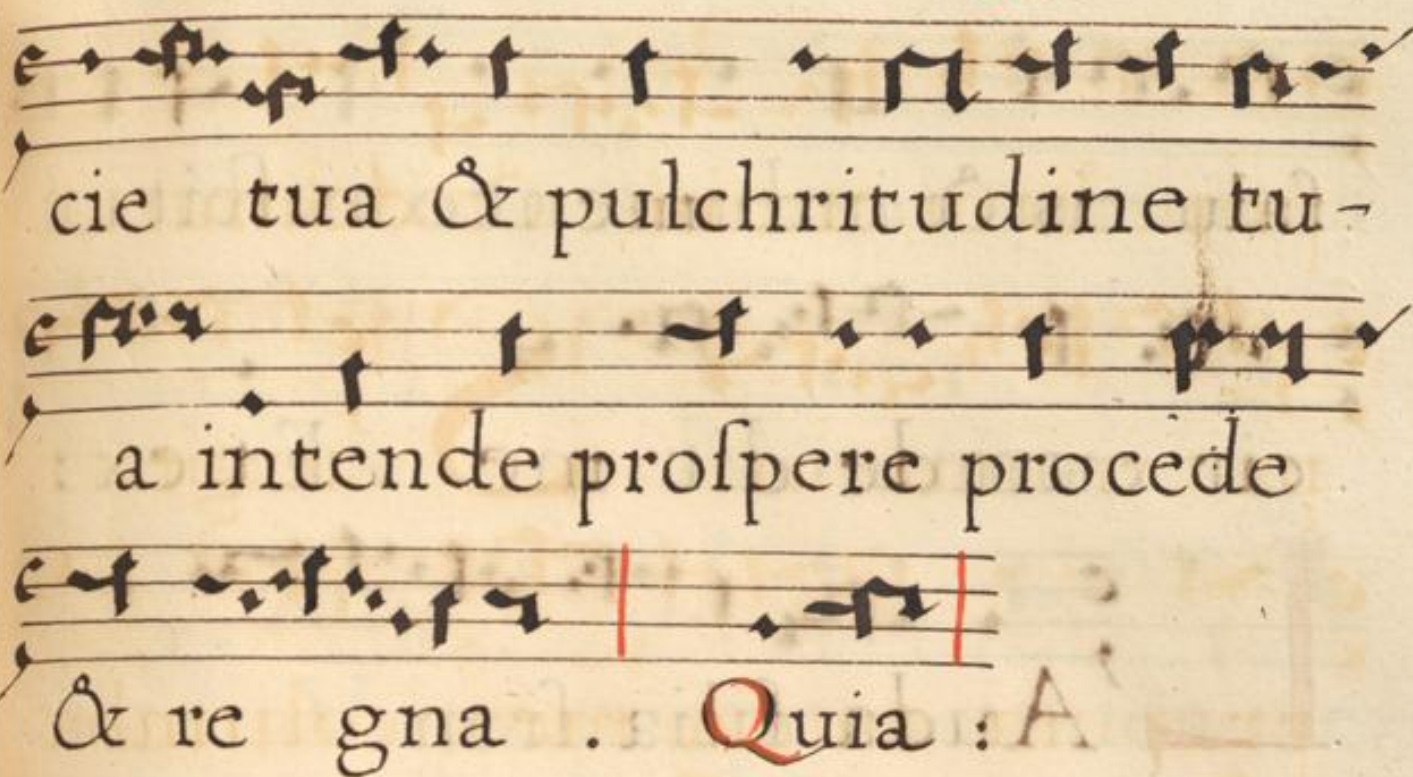 cie tua & pulchritudine tu-
a intende proſpere procede
& re gna . Quia : A